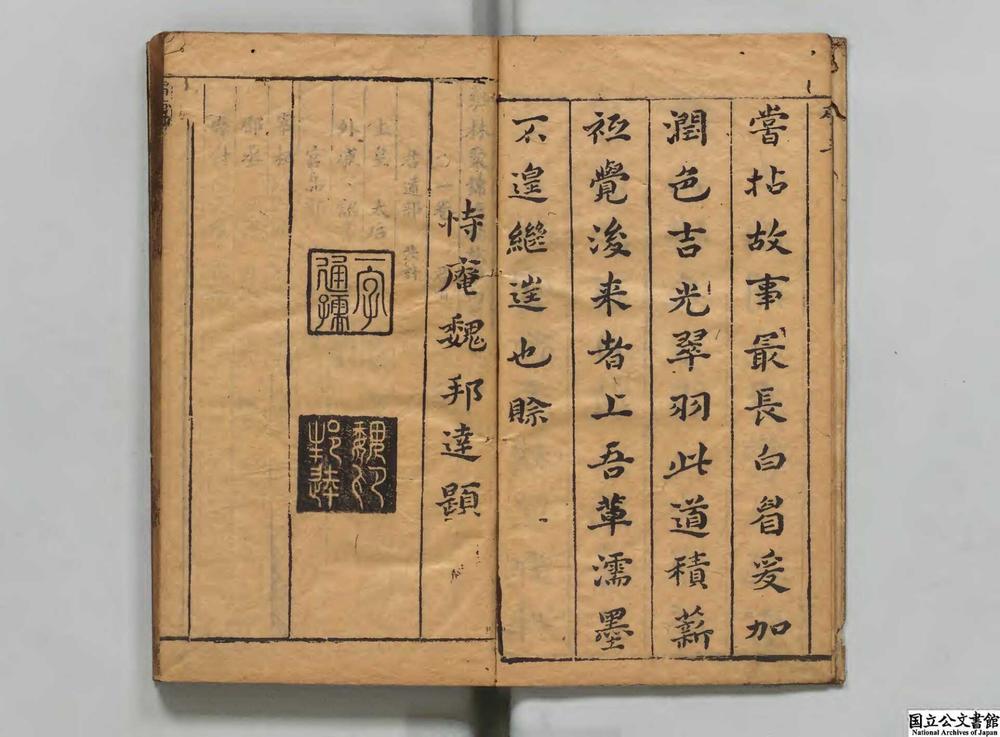 嘗拈故事最長白眉爰加
潤色吉光翠羽此道積薪
祗覺後来者上吾軰濡墨
不遑繼進也賒
恃庵魏邦達題
一字通孺
魏印邦達
国立公文書館
National Archives of Japan